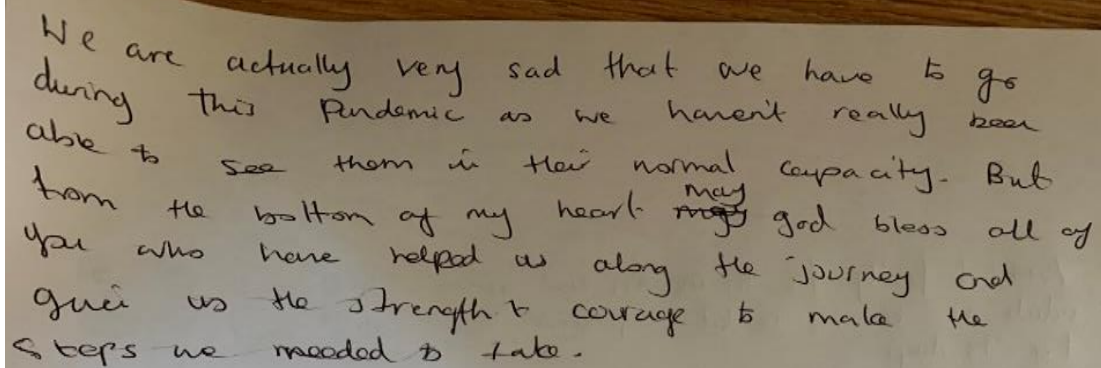 We are actually very sad that we have to go
during this Pandemic as we haven't really been
able to see them in their normal capacity. But
from the bottom of my heart may god bless all of
you who have helped us along the journey and
give us the strength & courage to make the
steps we needed to take.